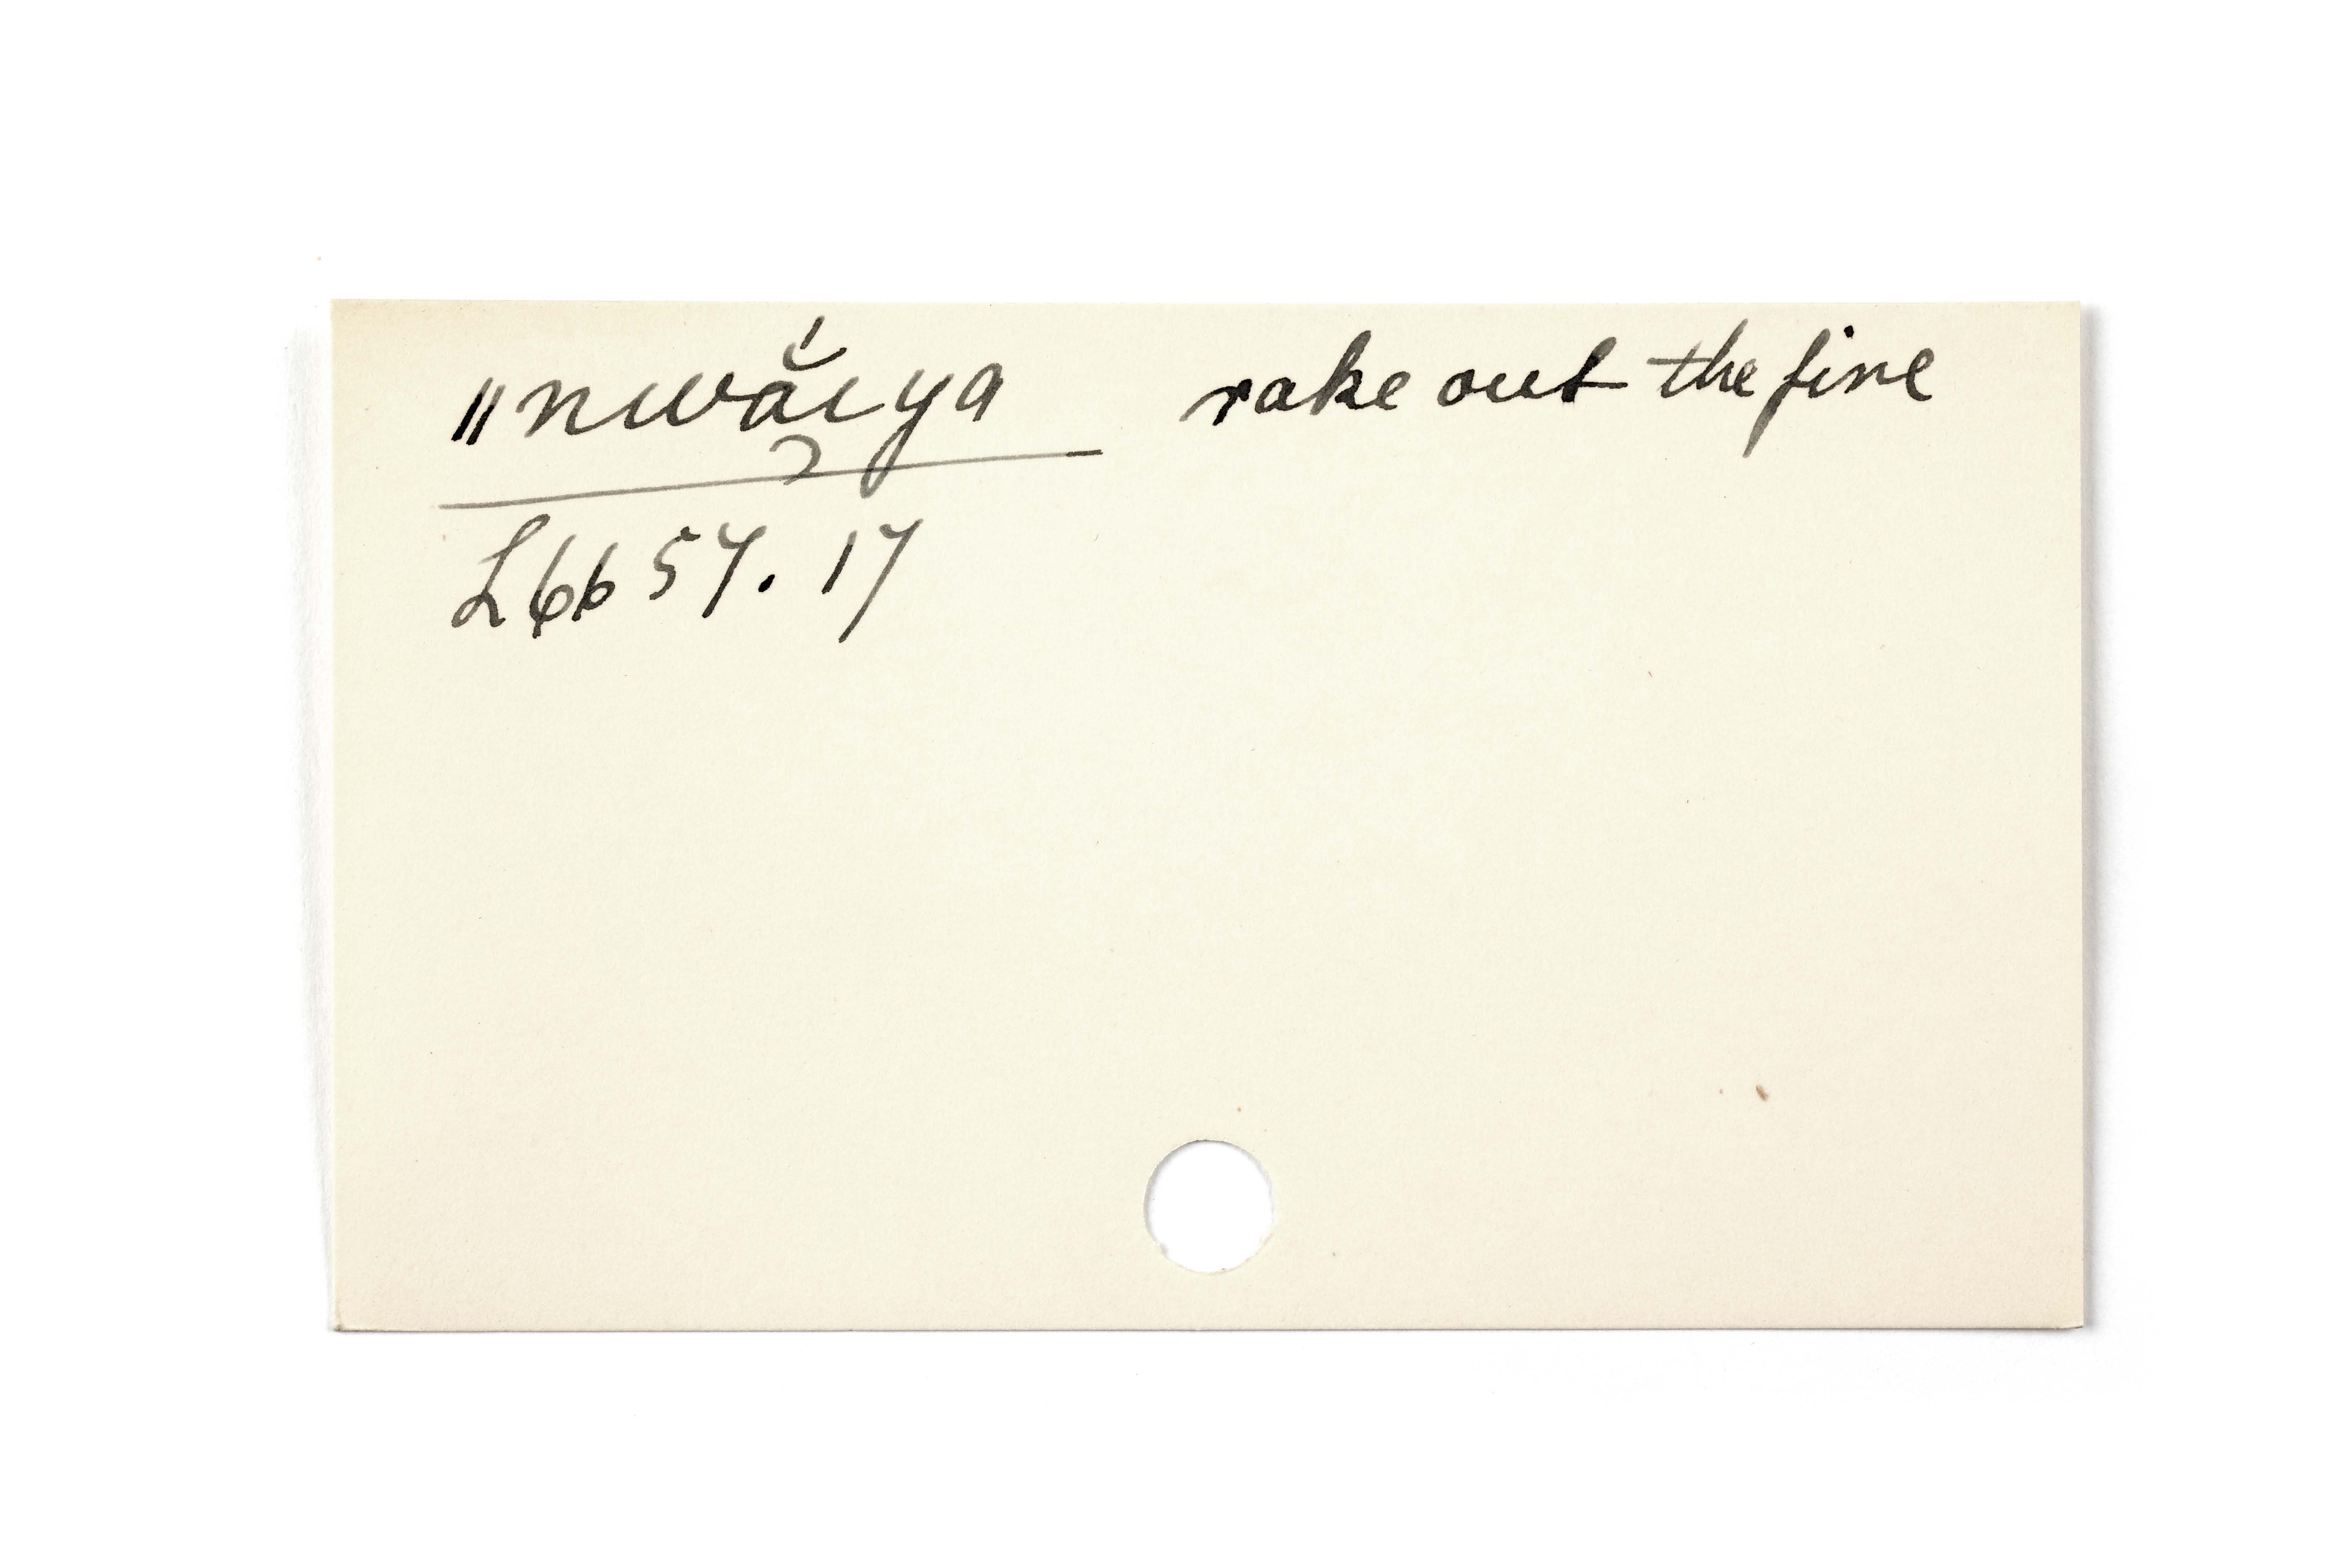 ‖nwā̆́ı̨ya rake out the fire
L66 57. 17